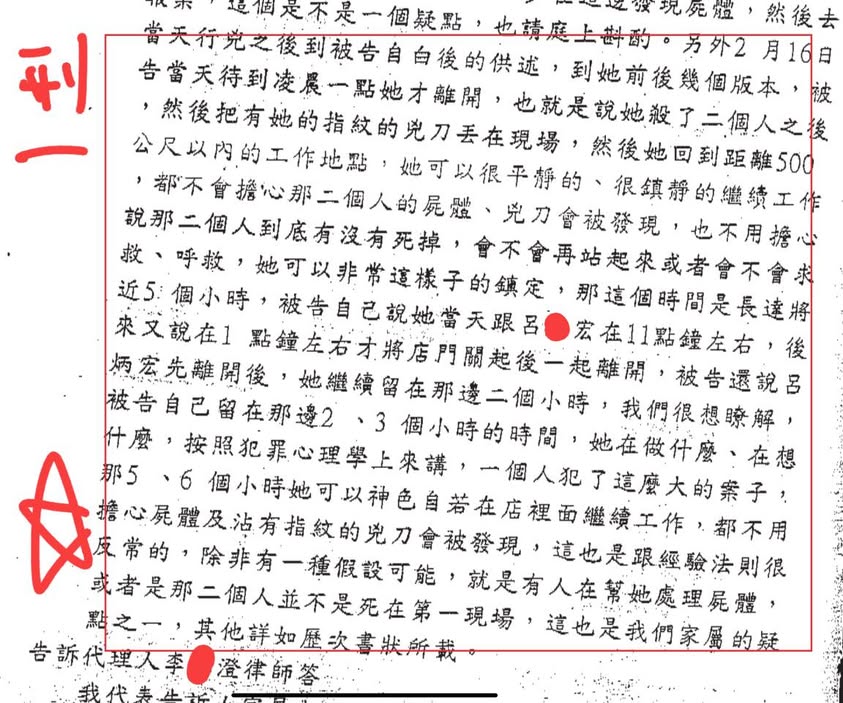 報案，這個是不是一個疑點，也請庭上斟酌。另外2 月16日
當天行兇之後到被告自白後的供述，到她前後幾個版本，被
告當天待到凌晨一點她才離開，也就是說她殺了二個人之後
，然後把有她的指紋的兇刀丟在現場，然後她回到距離500
公尺以內的工作地點，她可以很平靜的、很鎮靜的繼續工作
，都不會擔心那二個人的屍體、兇刀會被發現，也不用擔心
說那二個人到底有沒有死掉，會不會再站起來或者會不會求
救、呼救，她可以非常這樣子的鎮定，那這個時間是長達將
近5 個小時，被告自己說她當天跟呂 宏在11點鐘左右，後
來又說在1 點鐘左右才將店門關起後一起離開，被告還說呂
炳宏先離開後，她繼續留在那邊二個小時，我們很想瞭解，
被告自己留在那邊2 、3 個小時的時間，她在做什麼、在想
什麼，按照犯罪心理學上來講，一個人犯了這麼大的案子，
那5 、6 個小時她可以神色自若在店裡面繼續工作，都不用
擔心屍體及沾有指紋的兇刀會被發現，這也是跟經驗法則很
反常的，除非有一種假設可能，就是有人在幫她處理屍體，
或者是那二個人並不是死在第一現場，這也是我們家屬的疑
點之一，其他詳如歷次書狀所載。
告訴代理人李 澄律師答
我代表告訴人家屬
刑
一